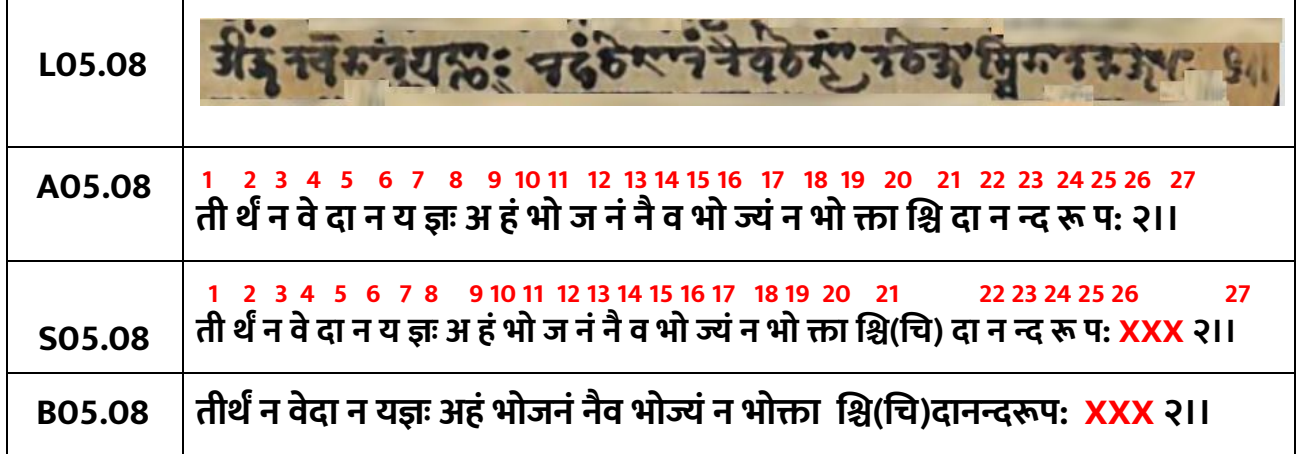 L05.08
A05.08
1 2 3 4 5 6 7 8 9 10 11 12 13 14 15 16 17 18 19 20 21 22 23 24 25 26 27
ती र्थं न वे दा न य ज्ञः अ हं भो ज नं नै व भो ज्यं न भो क्ता श्चि दा न न्द रू प: २।।
1 2 3 4 5 6 7 8 9 10 11 12 13 14 15 16 17 18 19 20 21 22 23 24 25 26 27
S05.08
ती र्थं न वे दा न य ज्ञः अ हं भो ज नं नै व भो ज्यं न भो क्ता श्चि(चि) दा न न्द रू प: XXX २।।
B05.08
तीर्थं न वेदा न यज्ञः अहं भोजनं नैव भोज्यं न भोक्ता श्चि(चि)दानन्दरूप: XXX २।।